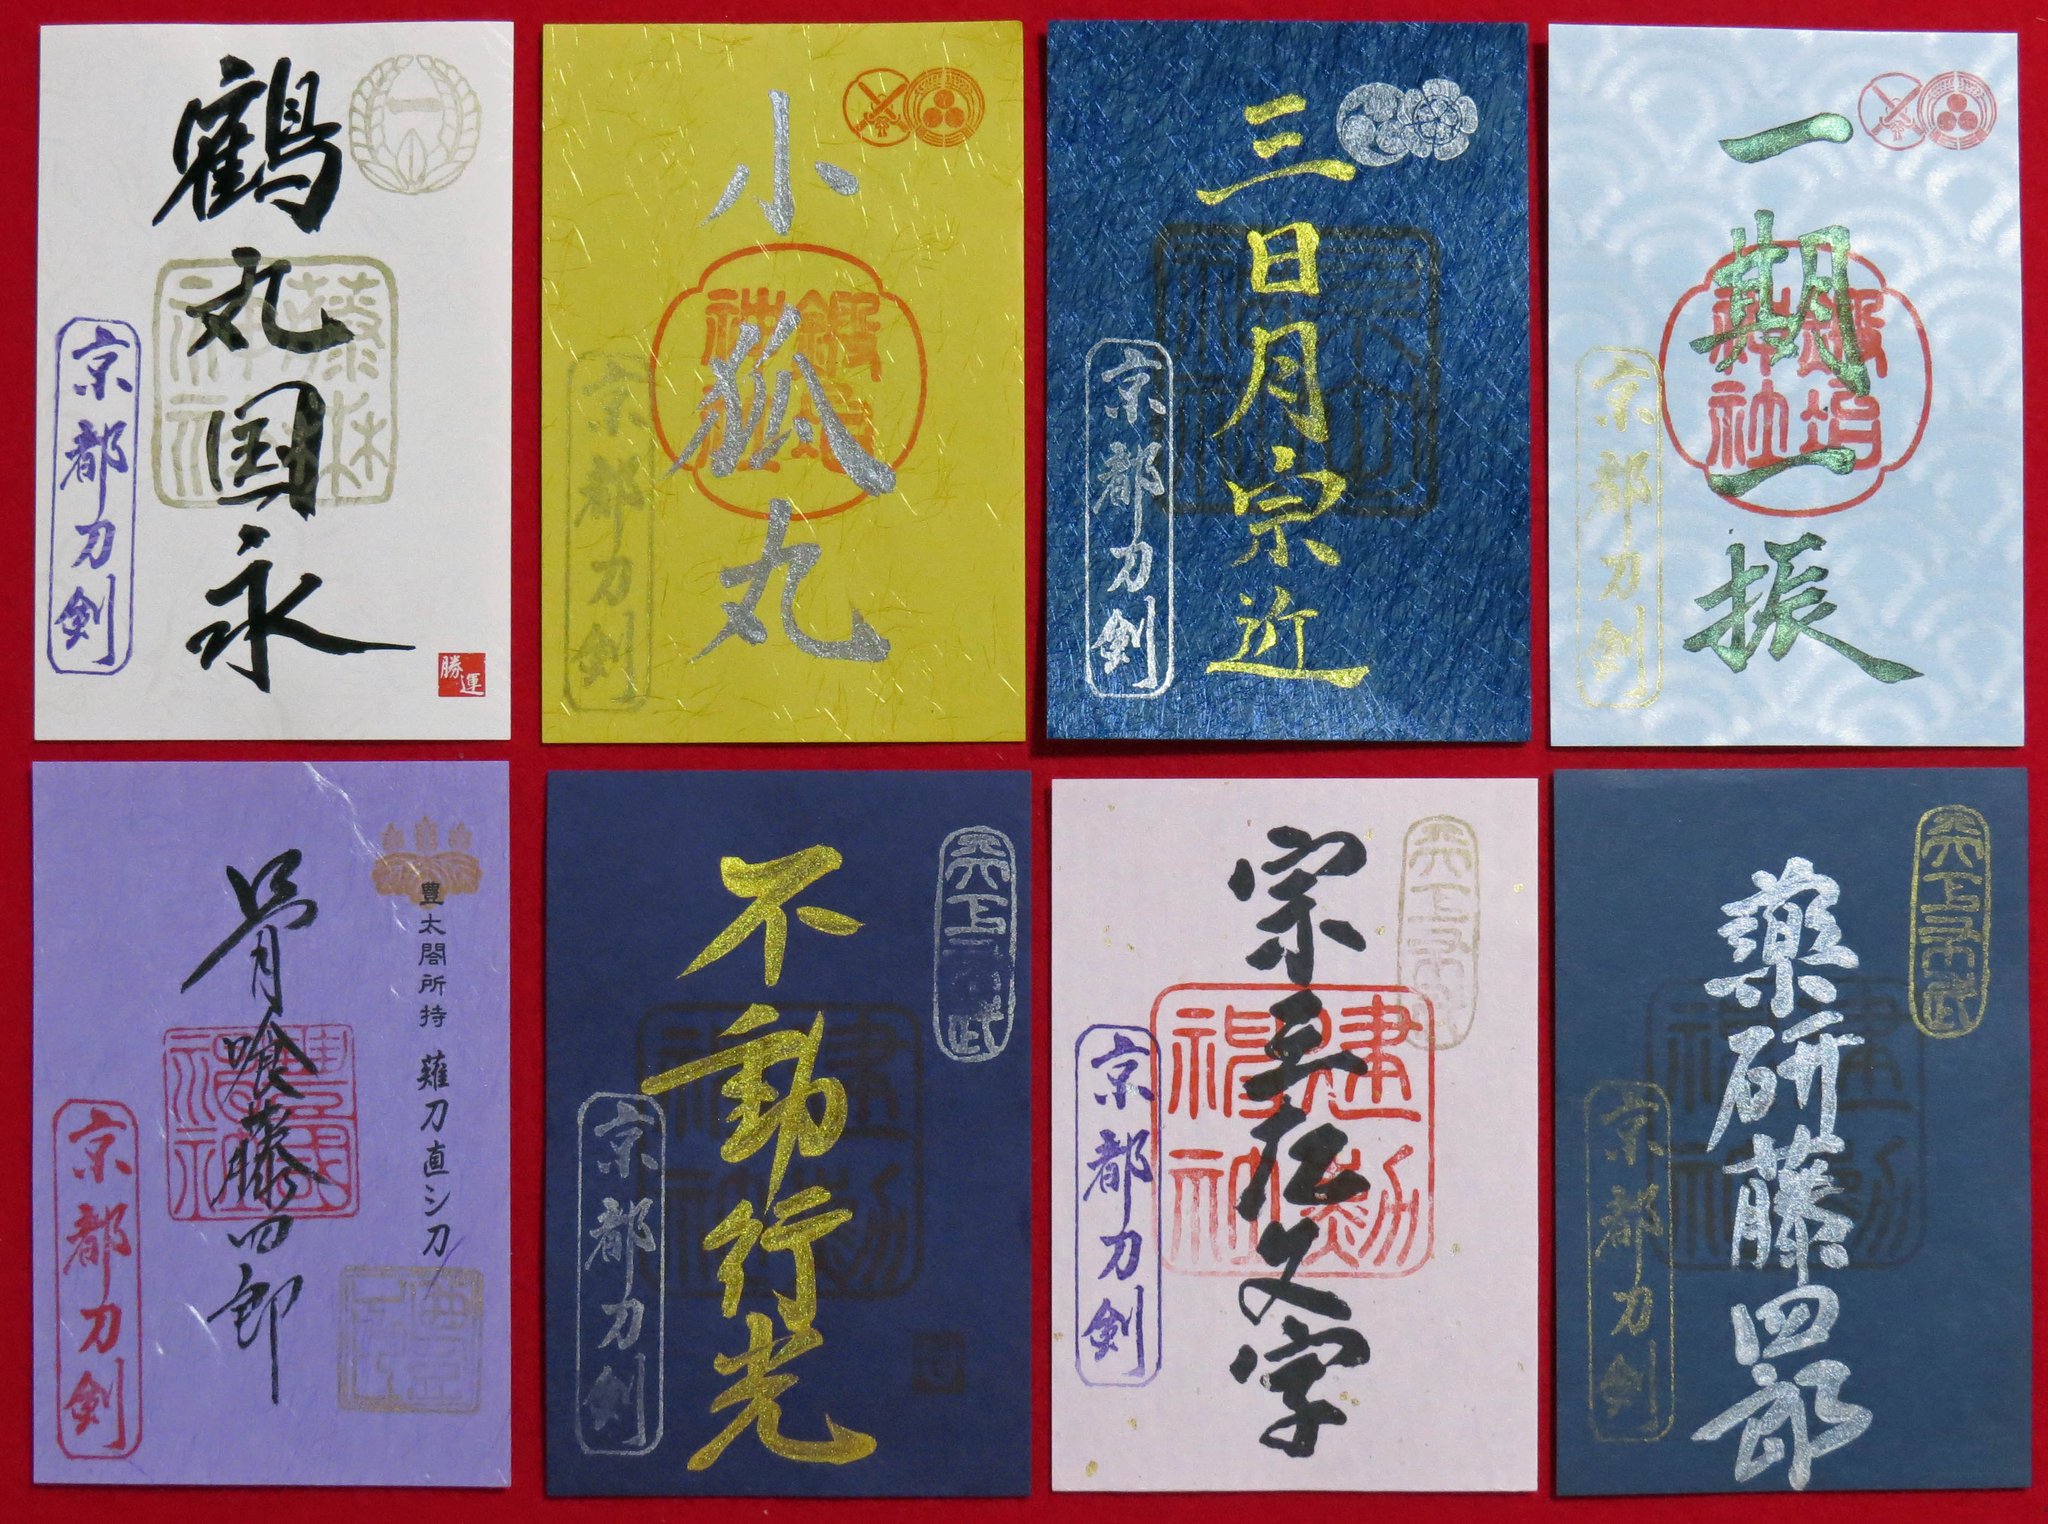 鶴丸国永
藤森神社
京都刀剣
勝運
小狐丸
鍛冶神社
京都刀剣
三日月宗近
京都刀剣
一期一振
鍛冶神社
京都刀剣
骨喰藤四郎
豊太閤所持 薙刀直シ刀
豊国神社
京都刀剣
不動行光
天下布武
建勲神社
京都刀剣
宗三左文字
天下布武
建勲神社
京都刀剣
薬研藤四郎
天下布武
建勲神社
京都刀剣